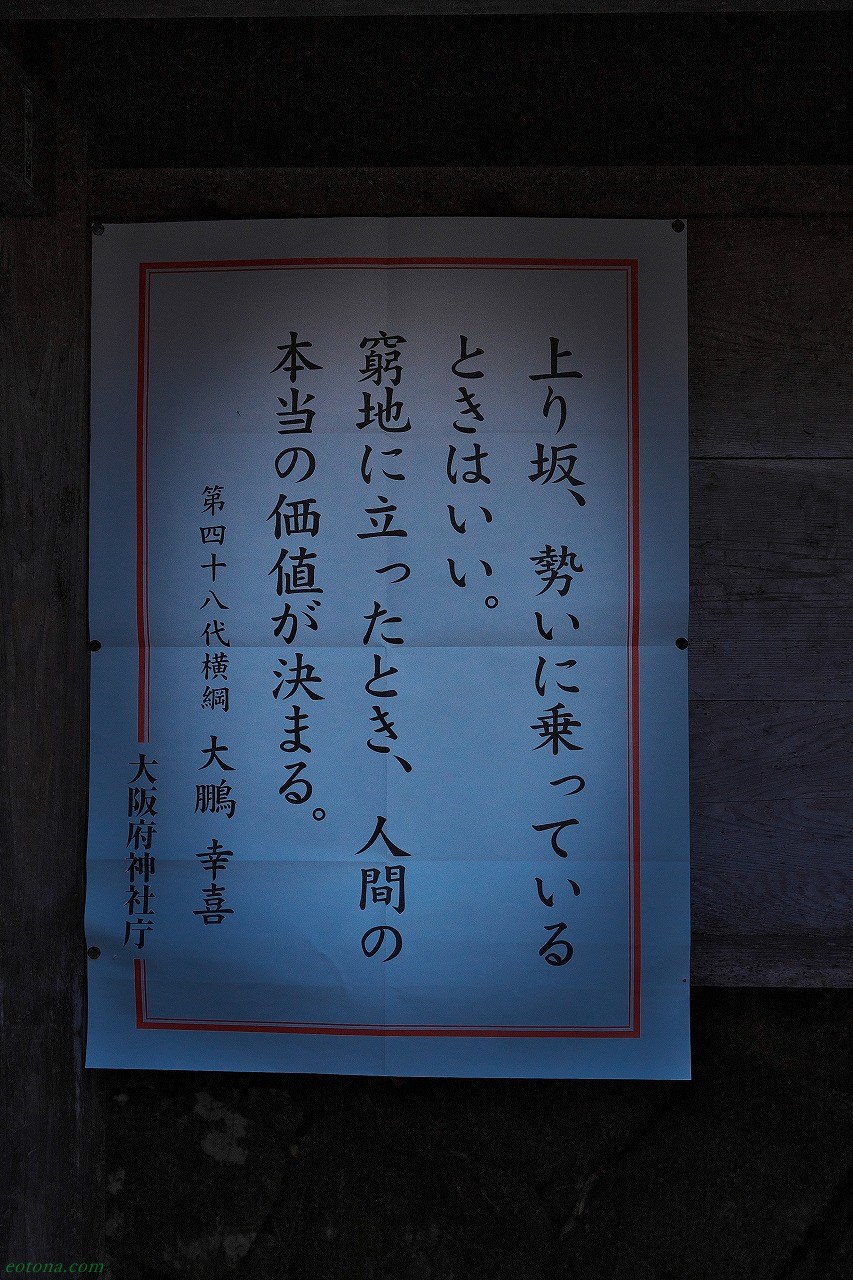 上り坂、勢いに乗っている
ときはいい。
窮地に立ったとき、人間の
本当の価値が決まる。
第四十八代横綱 大鵬 幸喜
大阪府神社庁
eotona.com